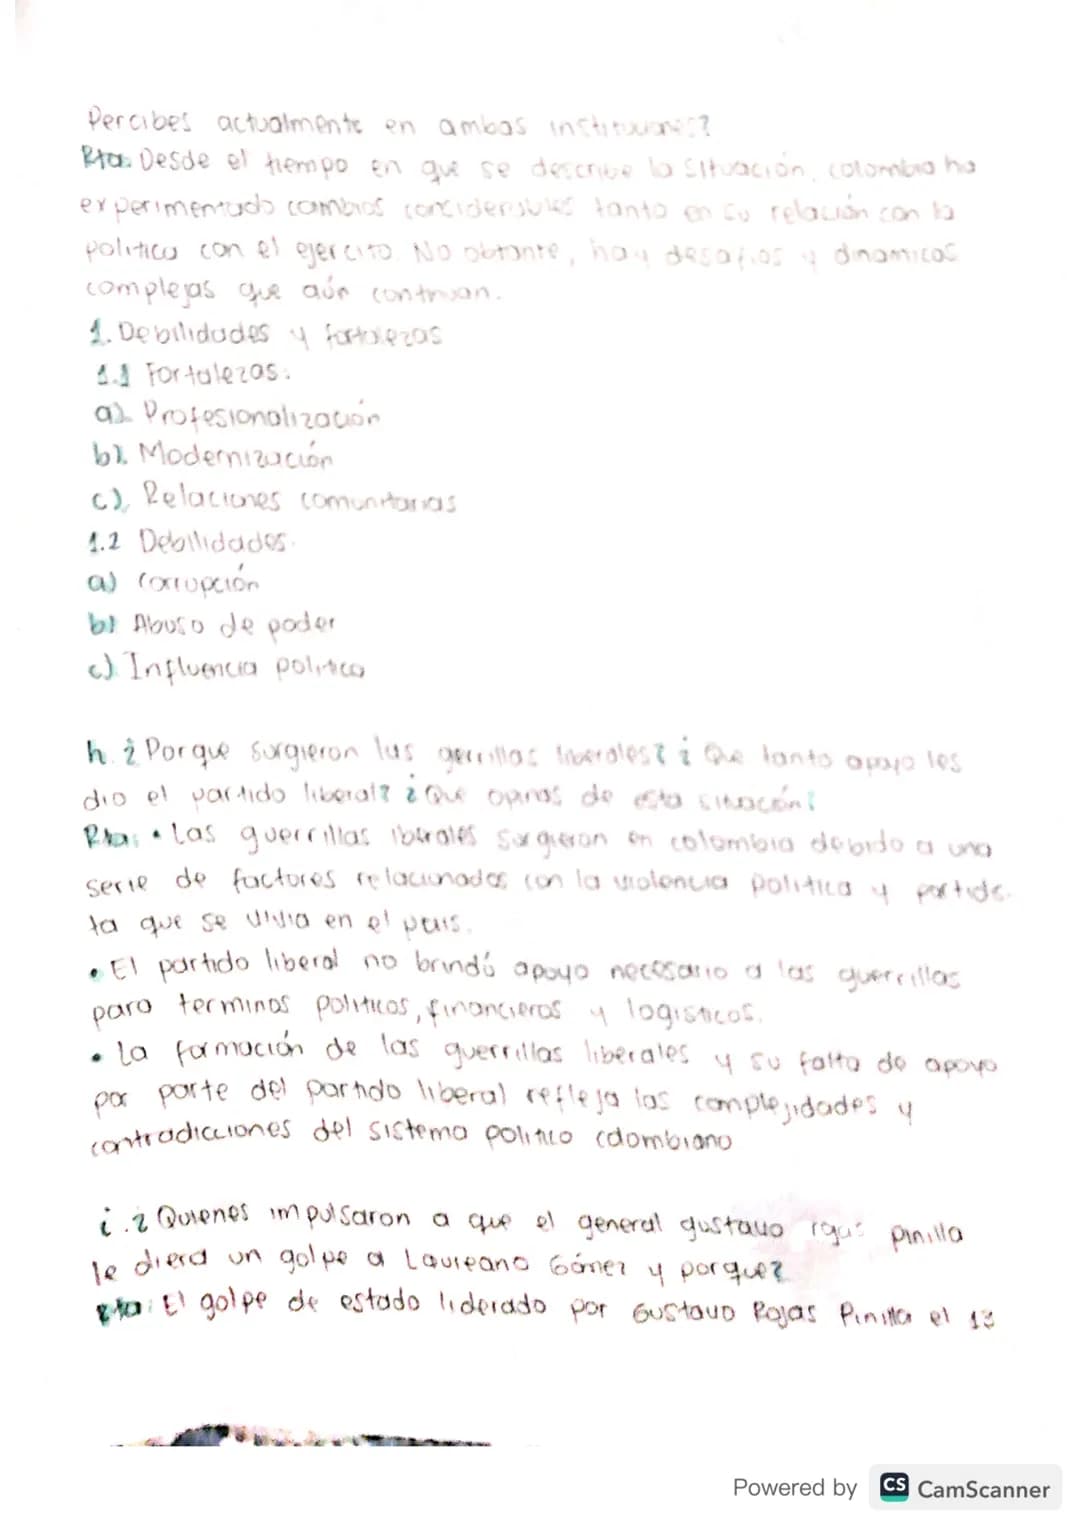 Percibes actualmente en ambas instituciones?
Rta: Desde el tiempo en que se describe la situación, colombia ha
experimentado cambios conciderables tanto en su relación con la
politica con el ejercito. No obtante, hay desafios y dinamicas
complejas que aún continuan.
1. Debilidades y fortalezas
1.1 Fortalezas:
a). Profesionalización
b). Modernización
c). Relaciones comunitarias
1.2 Debilidades.
a) Corrupción
b) Abuso de poder
c) Influencia politica
h. ¿Porque surgieron las gerrillas liberales? ¿Que tanto apoyo les
dio el partido liberal? ¿Que opinas de esta situación?
Rta: • Las guerrillas liberales surgieron en colombia debido a una
serie de factores relacionados con la violencia politica y partidis
ta que se vivia en el pais.
• El partido liberal no brindó apoyo necesario a las guerrillas
para terminos politicos, financieros y logisticos.
• La formación de las guerrillas liberales y su falta de apoyo
por parte del partido liberal refleja las complejidades y
contradicciones del sistema politico colombiano
i. ¿Quienes impulsaron a que el general gustavo rojas pinilla
le diera un golpe a Laureano Gómez y porque?
Rta: El golpe de estado liderado por Gustavo Rojas Pinilla el 13
Powered by CS CamScanner